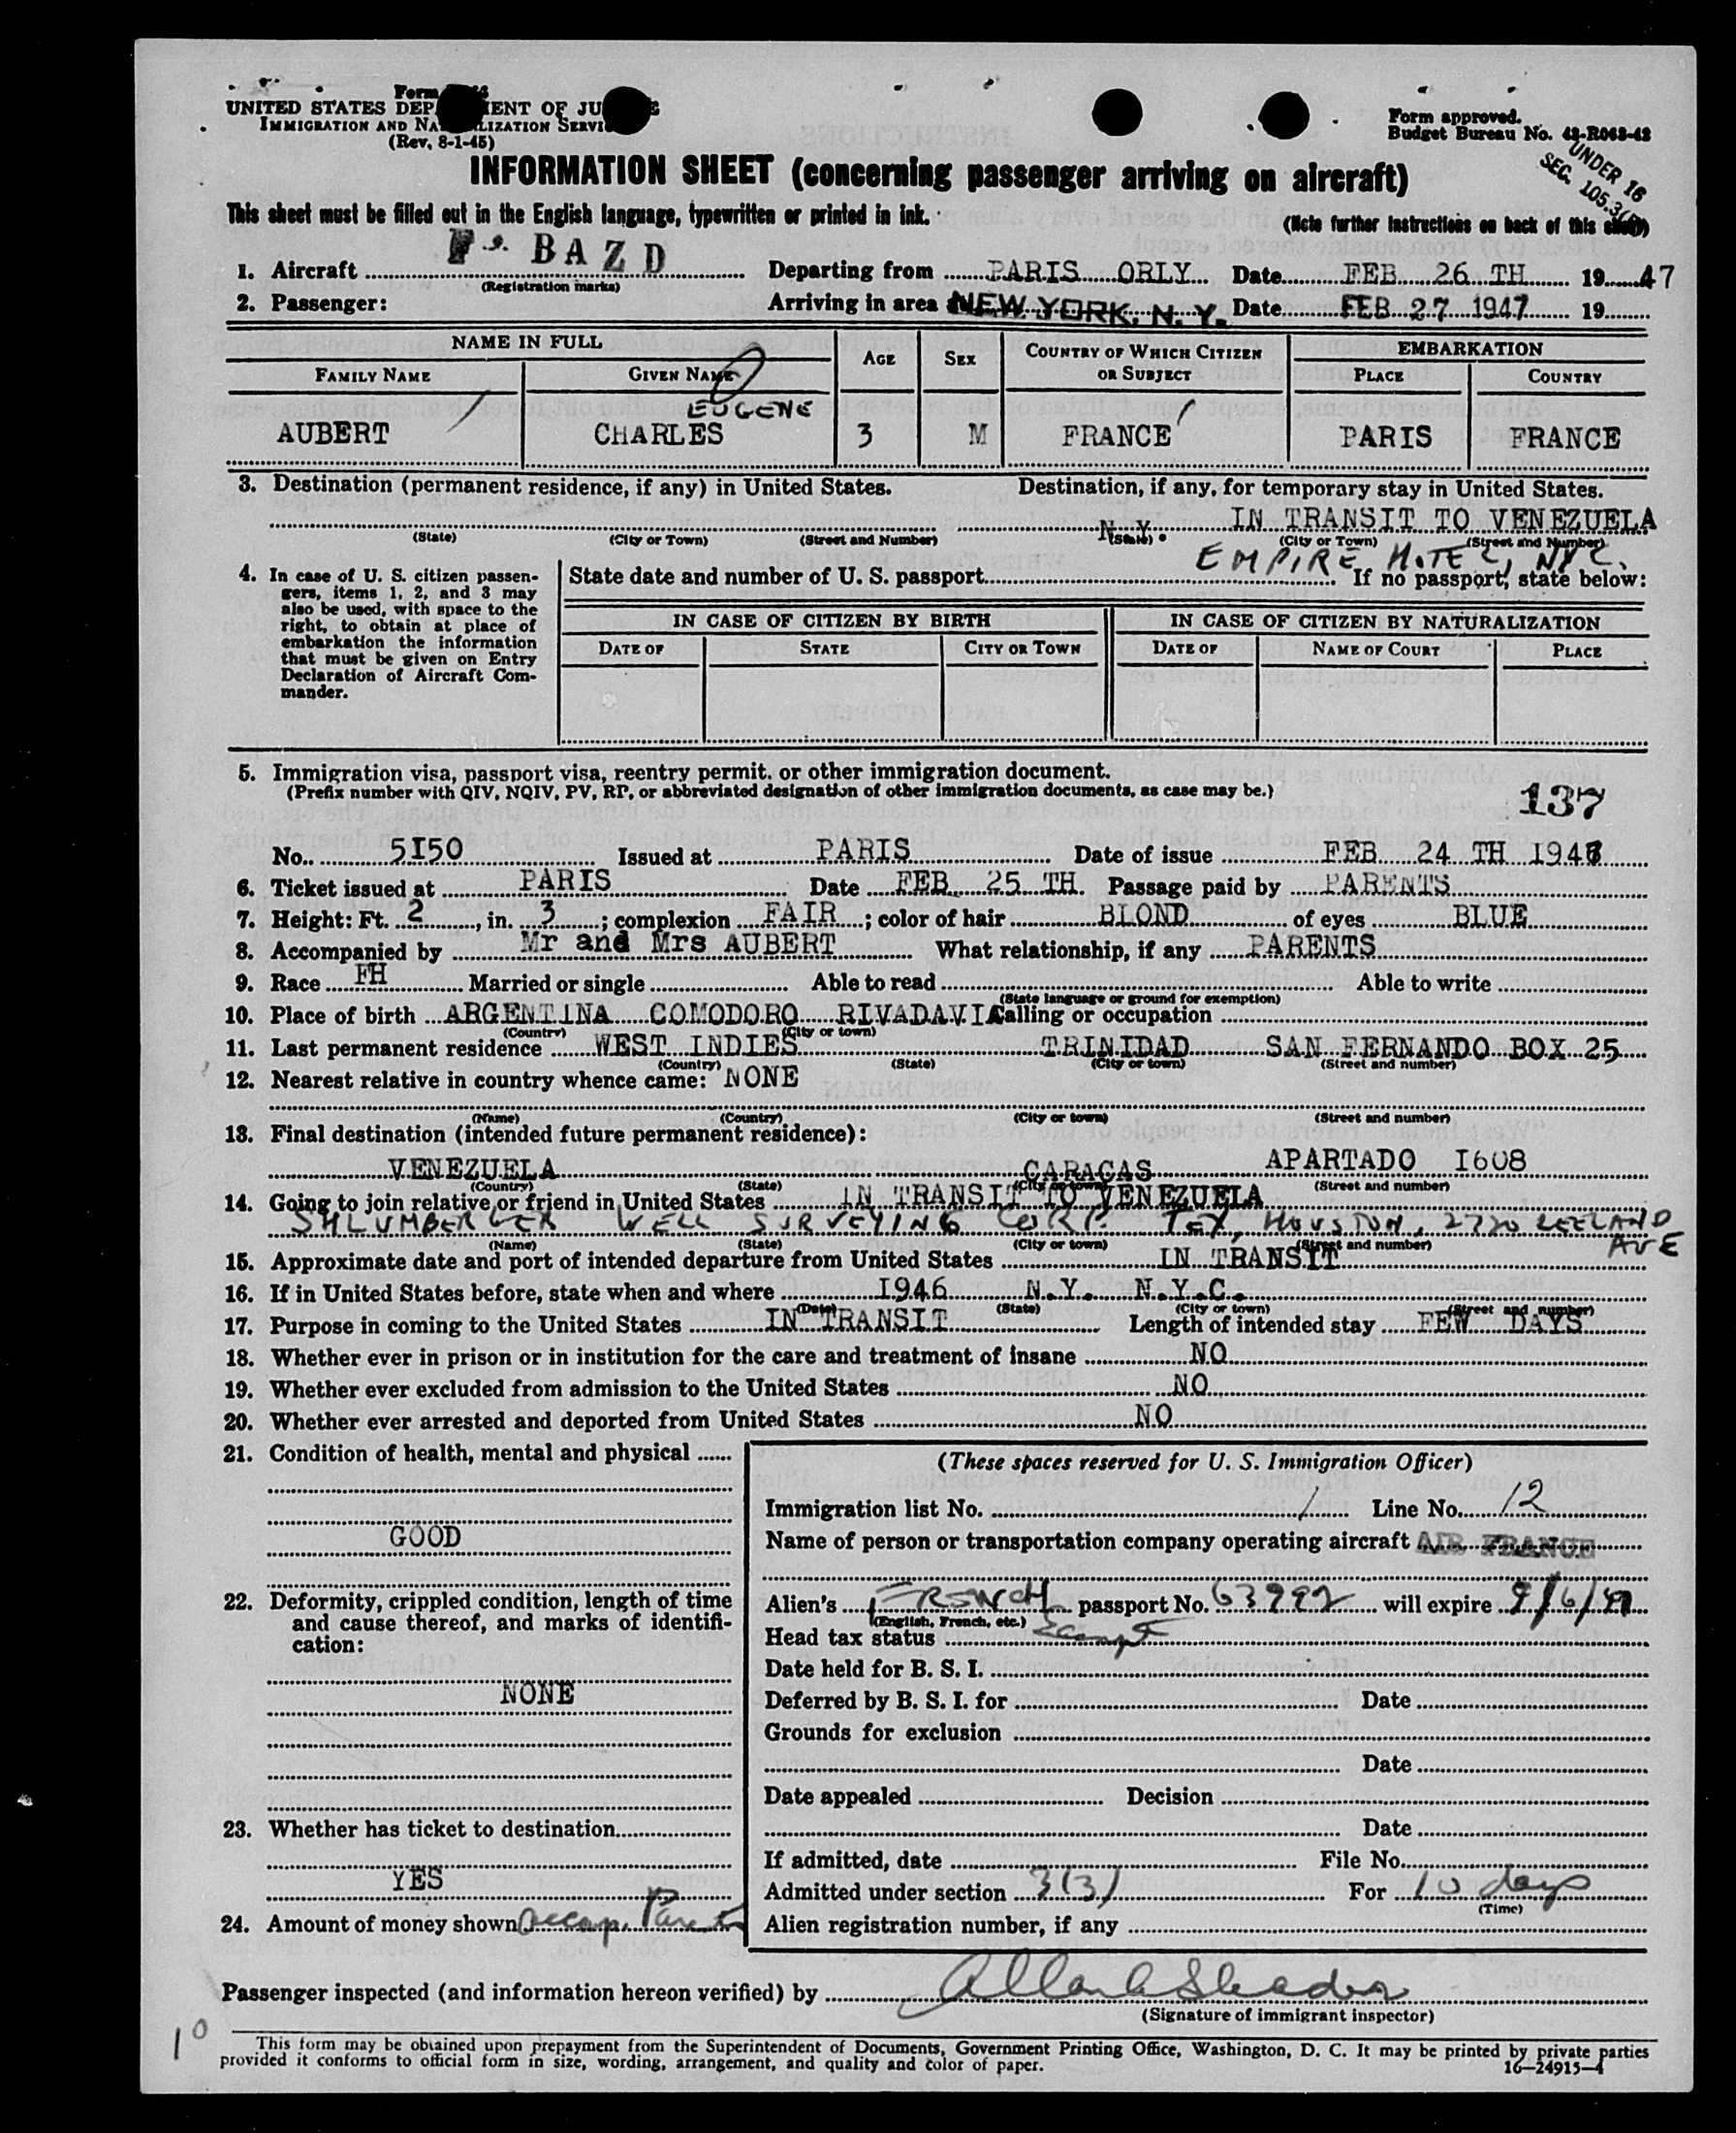 Form
UNITED STATES DEP ENT OF JU E
IMMIGRATION AND NA LIZATION SERVI
(Rev. 8-1-45)
Form approved.
Budget Bureau No. 43-R063-42
UNDER 16
SEC. 105.3
INFORMATION SHEET (concerning passenger arriving on aircraft)
This sheet must be filled out in the English language, typewritten or printed in ink. (Note further instructions on back of this sheet)
1. Aircraft F- BAZD Departing from PARIS ORLY Date FEB 26 TH 1947
(Registration marks)
2. Passenger: Arriving in area NEW YORK, N. Y. Date FEB 27 1947 19
NAME IN FULL AGE SEX COUNTRY OF WHICH CITIZEN OR SUBJECT EMBARKATION
FAMILY NAME GIVEN NAME PLACE COUNTRY
EUGENE
AUBERT CHARLES 3 M FRANCE PARIS FRANCE
3. Destination (permanent residence, if any) in United States. Destination, if any, for temporary stay in United States.
N.Y. IN TRANSIT TO VENEZUELA
(State) (City or Town) (Street and Number) (State) (City or Town) (Street and Number)
EMPIRE HOTEL, NYC.
4. In case of U. S. citizen passengers, items 1, 2, and 3 may also be used, with space to the right, to obtain at place of embarkation the information that must be given on Entry Declaration of Aircraft Commander.
State date and number of U. S. passport If no passport, state below:
IN CASE OF CITIZEN BY BIRTH IN CASE OF CITIZEN BY NATURALIZATION
DATE OF STATE CITY OR TOWN DATE OF NAME OF COURT PLACE
5. Immigration visa, passport visa, reentry permit, or other immigration document.
(Prefix number with QIV, NQIV, PV, RP, or abbreviated designation of other immigration documents, as case may be.)
137
No. 5I50 Issued at PARIS Date of issue FEB 24 TH 1947
6. Ticket issued at PARIS Date FEB 25 TH Passage paid by PARENTS
7. Height: Ft. 2, in. 3; complexion FAIR; color of hair BLOND of eyes BLUE
8. Accompanied by Mr and Mrs AUBERT What relationship, if any PARENTS
9. Race FH Married or single Able to read Able to write
(State language or ground for exemption)
10. Place of birth ARGENTINA COMODORO RIVADAVIA Calling or occupation
(Country) (City or town)
11. Last permanent residence WEST INDIES TRINIDAD SAN FERNANDO BOX 25
(Country) (State) (City or town) (Street and number)
12. Nearest relative in country whence came: NONE
(Name) (Country) (City or town) (Street and number)
13. Final destination (intended future permanent residence):
VENEZUELA CARACAS APARTADO I608
(Country) (State) (City or town) (Street and number)
14. Going to join relative or friend in United States IN TRANSIT TO VENEZUELA
SHLUMBERGER WELL SURVEYING CORP. TEX, HOUSTON, 2720 LEELAND AVE
(Name) (State) (City or town) (Street and number)
15. Approximate date and port of intended departure from United States IN TRANSIT
16. If in United States before, state when and where I946 N.Y. N.Y.C.
(Date) (State) (City or town) (Street and number)
17. Purpose in coming to the United States IN TRANSIT Length of intended stay FEW DAYS
18. Whether ever in prison or in institution for the care and treatment of insane NO
19. Whether ever excluded from admission to the United States NO
20. Whether ever arrested and deported from United States NO
21. Condition of health, mental and physical
GOOD
22. Deformity, crippled condition, length of time and cause thereof, and marks of identification:
NONE
23. Whether has ticket to destination
YES
24. Amount of money shown accomp. Parents
(These spaces reserved for U. S. Immigration Officer)
Immigration list No. 1 Line No. 12
Name of person or transportation company operating aircraft AIR FRANCE
Alien's FRENCH passport No. 63992 will expire 9/6/47
(English, French, etc.)
Head tax status Exempt
Date held for B. S. I.
Deferred by B. S. I. for Date
Grounds for exclusion
Date
Date appealed Decision
Date
If admitted, date File No.
Admitted under section 3(3) For 10 days
(Time)
Alien registration number, if any
Passenger inspected (and information hereon verified) by
(Signature of immigrant inspector)
10
This form may be obtained upon prepayment from the Superintendent of Documents, Government Printing Office, Washington, D. C. It may be printed by private parties
provided it conforms to official form in size, wording, arrangement, and quality and color of paper. 16—24915-4